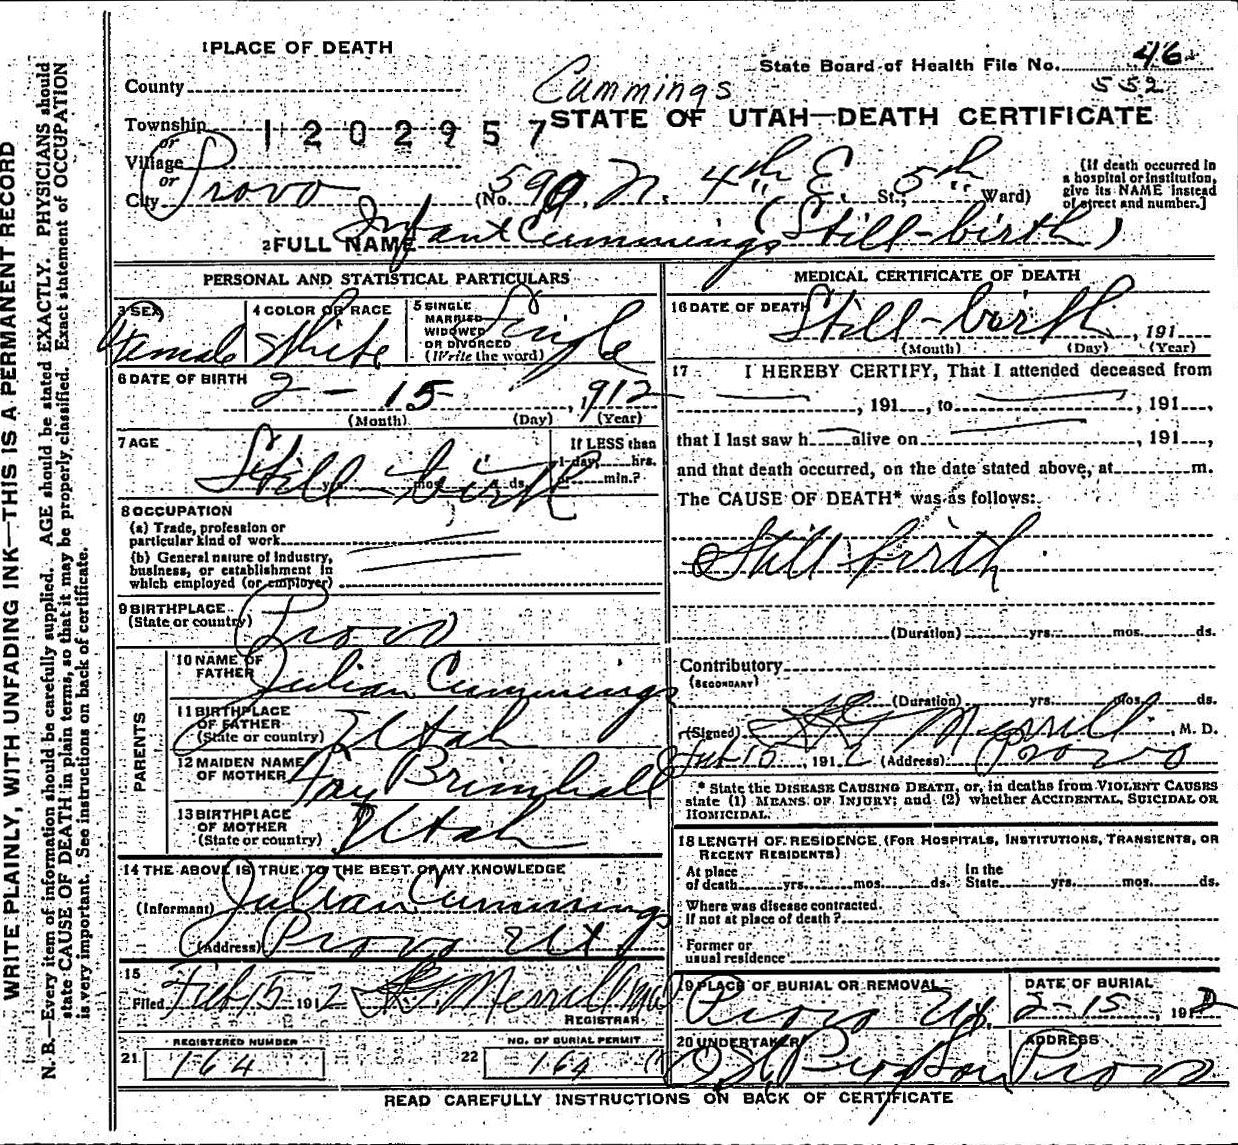 WRITE PLAINLY, WITH UNFADING INK—THIS IS A PERMANENT RECORD
N. B.—Every item of information should be carefully supplied. AGE should be stated EXACTLY. PHYSICIANS should
state CAUSE OF DEATH in plain terms, so that it may be properly classified. Exact statement of OCCUPATION
is very important. See instructions on back of certificate.
1 PLACE OF DEATH
State Board of Health File No. 46
552
County
Cummings
STATE OF UTAH—DEATH CERTIFICATE
Township 1202957
or
Village
or
City Provo (No. 590 N. 4th E. St.; 5th Ward)
(If death occurred in
a hospital or institution,
give its NAME instead
of street and number.]
2 FULL NAME Infant Cummings (Still-birth)
PERSONAL AND STATISTICAL PARTICULARS
3 SEX Female
4 COLOR OR RACE White
5 SINGLE
MARRIED
WIDOWED
OR DIVORCED
(Write the word) Single
6 DATE OF BIRTH 2 - 15, 1912
(Month) (Day) (Year)
7 AGE Still-birth
yrs. mos. ds.
If LESS than
1 day, hrs.
or min.?
8 OCCUPATION
(a) Trade, profession or
particular kind of work
(b) General nature of industry,
business, or establishment in
which employed (or employer)
9 BIRTHPLACE
(State or country) Provo
PARENTS
10 NAME OF
FATHER Julian Cummings
11 BIRTHPLACE
OF FATHER
(State or country) Utah
12 MAIDEN NAME
OF MOTHER Fay Brimhall
13 BIRTHPLACE
OF MOTHER
(State or country) Utah
14 THE ABOVE IS TRUE TO THE BEST OF MY KNOWLEDGE
(Informant) Julian Cummings
(Address) Provo Ut
15
Filed Feb 15 1912 Merrill MD
REGISTRAR
21 REGISTERED NUMBER
164
22 NO. OF BURIAL PERMIT
164
MEDICAL CERTIFICATE OF DEATH
16 DATE OF DEATH Still-birth, 191
(Month) (Day) (Year)
17 I HEREBY CERTIFY, That I attended deceased from
, 191 , to , 191 ,
that I last saw h alive on , 191 ,
and that death occurred, on the date stated above, at m.
The CAUSE OF DEATH* was as follows:
Still birth
(Duration) yrs. mos. ds.
Contributory
(SECONDARY)
(Duration) yrs. mos. ds.
(Signed) Merrill, M. D.
Feb 15, 1912 (Address) Provo
* State the DISEASE CAUSING DEATH, or, in deaths from VIOLENT CAUSES
state (1) MEANS OF INJURY; and (2) whether ACCIDENTAL, SUICIDAL OR
HOMICIDAL.
18 LENGTH OF RESIDENCE (FOR HOSPITALS, INSTITUTIONS, TRANSIENTS, OR
RECENT RESIDENTS)
At place
of death yrs. mos. ds.
In the
State yrs. mos. ds.
Where was disease contracted
If not at place of death?
Former or
usual residence
19 PLACE OF BURIAL OR REMOVAL
Provo Ut.
DATE OF BURIAL
2-15, 1912
20 UNDERTAKER
ADDRESS
Provo
READ CAREFULLY INSTRUCTIONS ON BACK OF CERTIFICATE